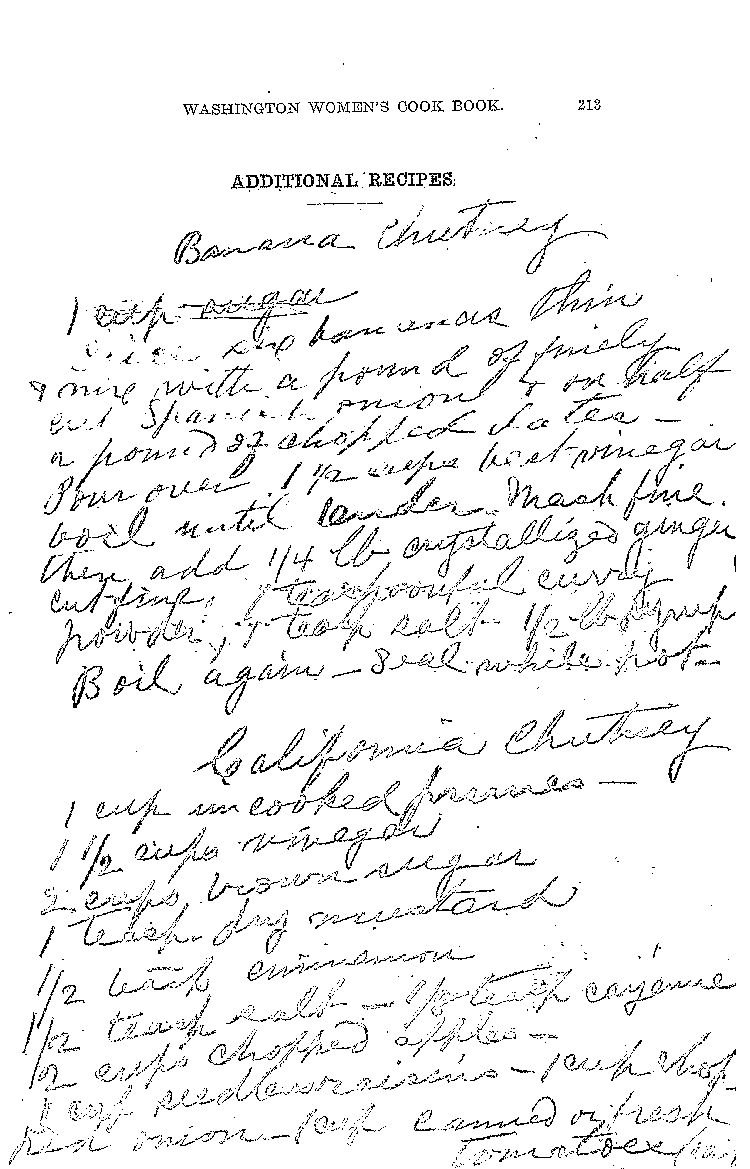 WASHINGTON WOMEN'S COOK BOOK. 213
ADDITIONAL RECIPES.
Banana Chutney
1 cup sugar
Slice six bananas thin
& mix with a pound of finely
cut Spanish onion & on half
a pound of chopped dates –
Pour over 1 1/2 cups best vinegar
boil until tender. Mash fine.
then add 1/4 lb crystallized ginger
cut fine, 1 teaspoonful curry
powder, 1 teasp salt – 1/2 lb syrup
Boil again – Seal white hot –
California Chutney
1 cup uncooked prunes –
1 1/2 cups vinegar
2 cups brown sugar
1 teasp. dry mustard
1/2 teasp cinnemon
1/2 teasp salt – 1/8 teasp cayenne
2 cups chopped apples –
1 cup seedless raisins – 1 cup chop-
ped onion – 1 cup canned or fresh
tomatoes